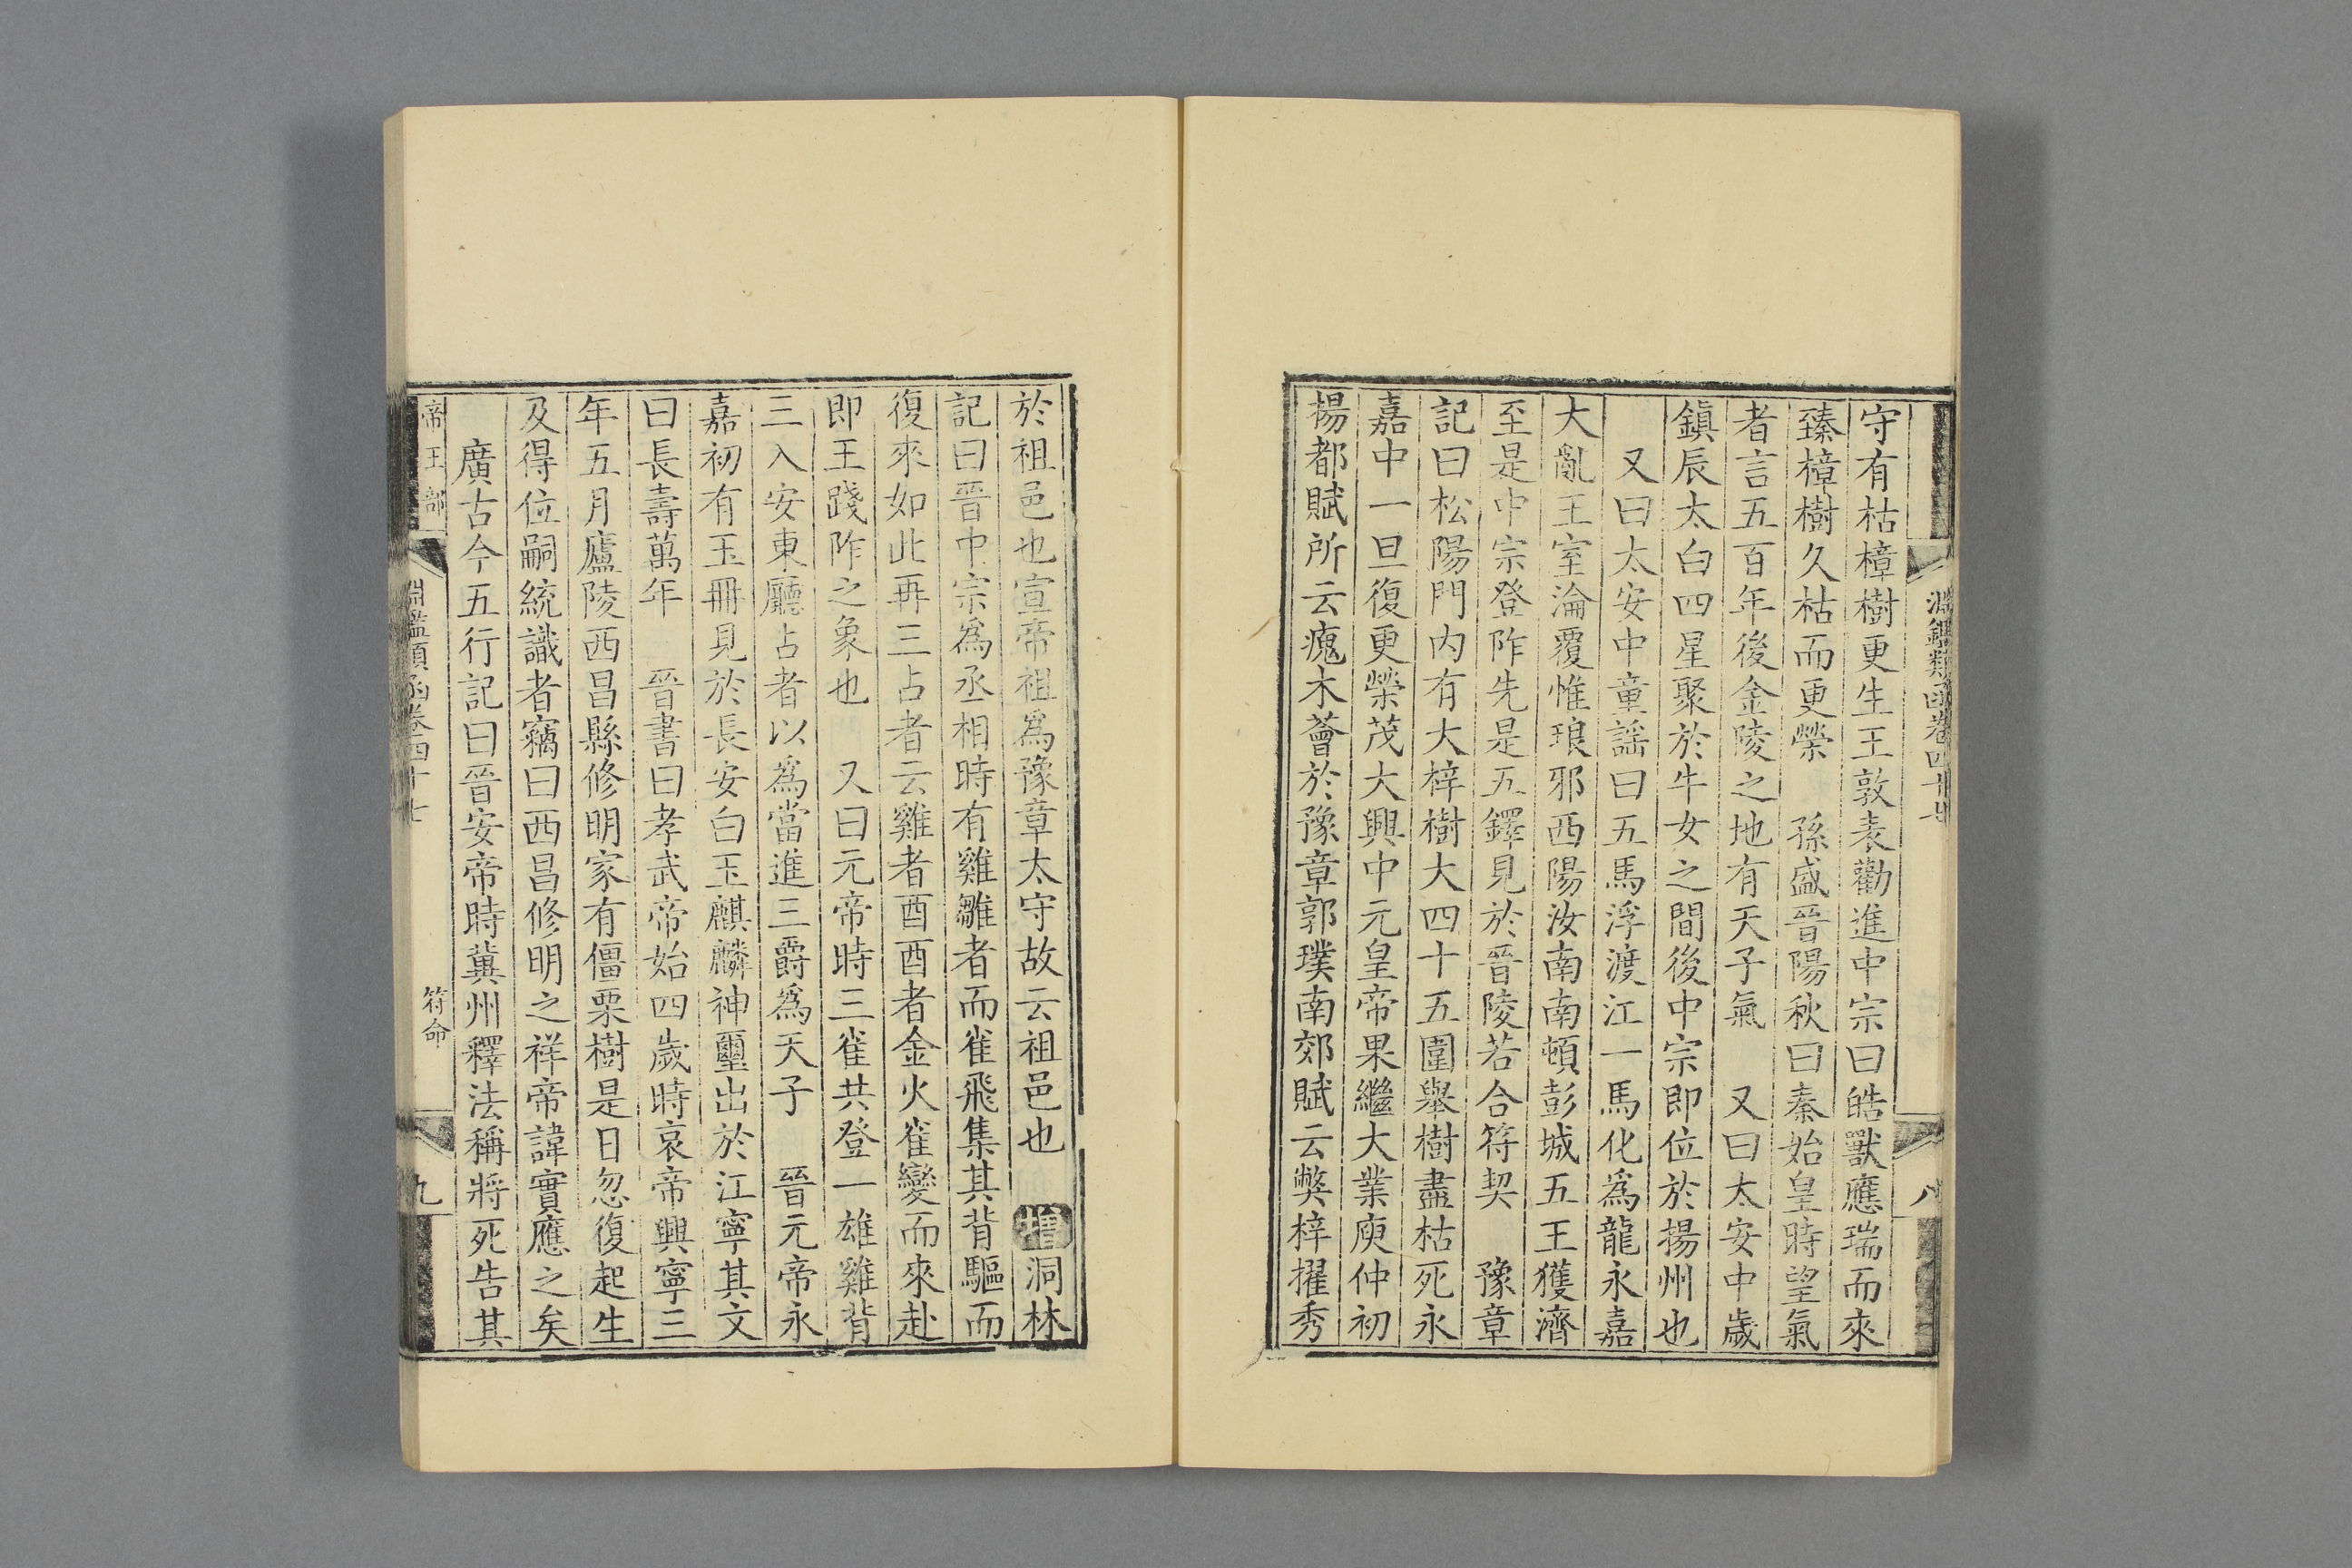 淵鑑類函卷四十七
八
守有枯樟樹更生王敦表勸進中宗曰皓獸應瑞而來
臻樟樹久枯而更榮　孫盛晉陽秋曰秦始皇時望氣
者言五百年後金陵之地有天子氣　又曰太安中歲
鎮辰太白四星聚於牛女之間後中宗即位於揚州也
又曰太安中童謠曰五馬浮渡江一馬化為龍永嘉
大亂王室淪覆惟琅邪西陽汝南南頓彭城五王獲濟
至是中宗登阼先是五鐸見於晉陵若合符契　豫章
記曰松陽門內有大梓樹大四十五圍舉樹盡枯死永
嘉中一旦復更榮茂大興中元皇帝果繼大業庾仲初
揚都賦所云瘣木薈於豫章郭璞南郊賦云弊梓擢秀
於祖邑也宣帝祖為豫章太守故云祖邑也　增洞林
記曰晉中宗為丞相時有雞雛者而雀飛集其背驅而
復來如此再三占者云雞者酉酉者金火雀變而來赴
即王踐阼之象也　又曰元帝時三雀共登一雄雞背
三入安東廳占者以為當進三爵為天子　晉元帝永
嘉初有玉冊見於長安白玉麒麟神璽出於江寧其文
曰長壽萬年　晉書曰孝武帝始四歲時哀帝興寧三
年五月廬陵西昌縣修明家有僵栗樹是日忽復起生
及得位嗣統識者竊曰西昌修明之祥帝諱實應之矣
廣古今五行記曰晉安帝時冀州釋法稱將死告其
帝王部
淵鑑類函卷四十七
符命
九